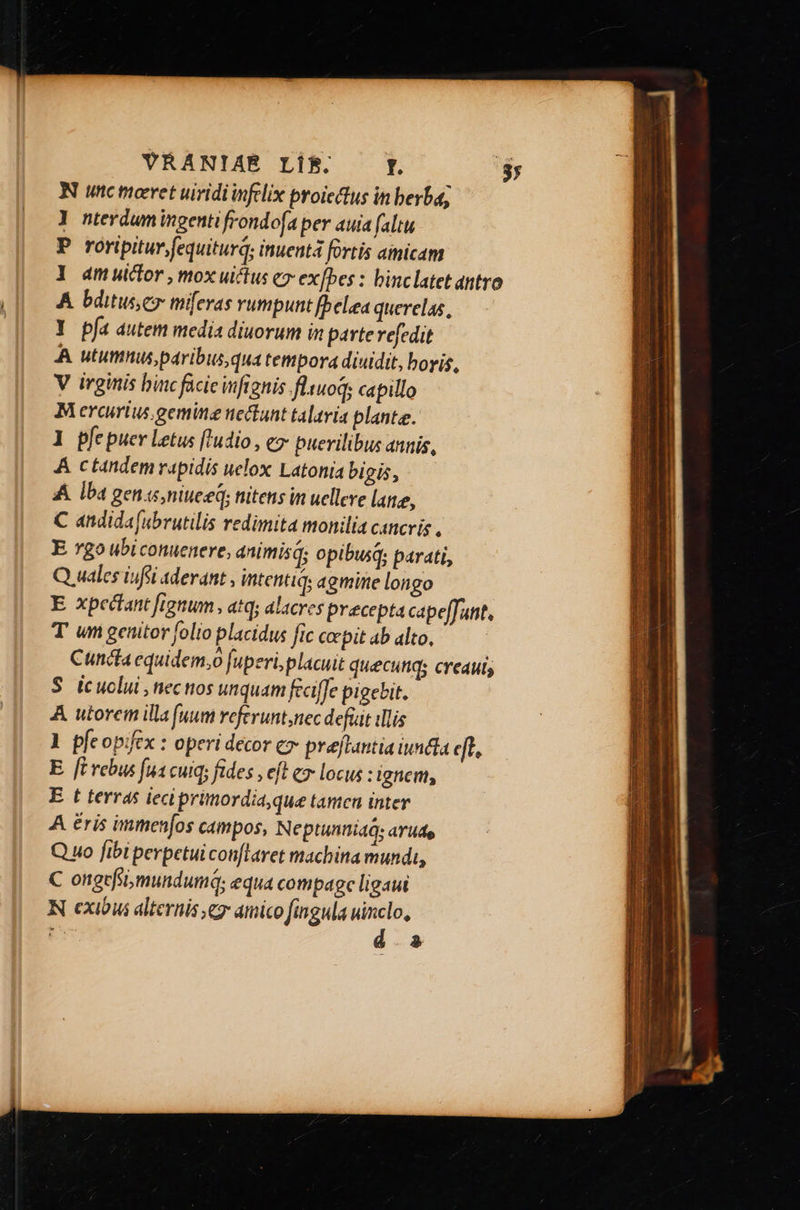 VRANIAE LIB. I. 35
N unc mœret uiridi infelix proiectus in herba,
I nterdum ingenti frondoſa per auia ſaltu
P roripitur, ſequiturq́; inuentā fortis amicam
I am uictor, mox uictus & exſpes: hinc latet antro
A bditus, & miſeras rumpunt ſpelæa querelas,
I pſa autem media diuorum in parte reſedit
A utumnus, paribus, qua tempora diuidit, horis,
V irginis hinc facie inſignis flauoq́; capillo
M ercurius, geminæ nectunt talaria plantæ.
I pſe puer Letus ſtudio, & puerilibus annis,
A c tandem rapidis uelox Latonia bigis,
A lba genas, niueæq́; nitens in uellere lanæ,
C andida ſub rutilis redimita monilia cancris.
E rgo ubi conuenere, animisq́; opibusq́; parati,
Q uales iuſsi aderant, intentiq́; agmine longo
E xpectant ſignum, atq; alacres præcepta capeſſunt,
T um genitor ſolio placidus ſic cœpit ab alto.
Cuncta equidem, ò ſuperi, placuit quæcunq; creaui,
S ic uolui, nec nos unquam feciſſe pigebit.
A utorem illa ſuum referunt, nec defuit illis
I pſe opifex: operi decor & præſtantia iuncta eſt,
E ſt rebus ſua cuiq; fides, eſt & locus: ignem,
E t terras ieci primordia, quæ tamen inter
A ëris immenſos campos, Neptunniaq́; arua,
Q uo ſibi perpetui conſtaret machina mundi,
C ongeſsi, mundumq́; æqua compage ligaui
N exibus alternis, & amico ſingula uinclo,
d 2